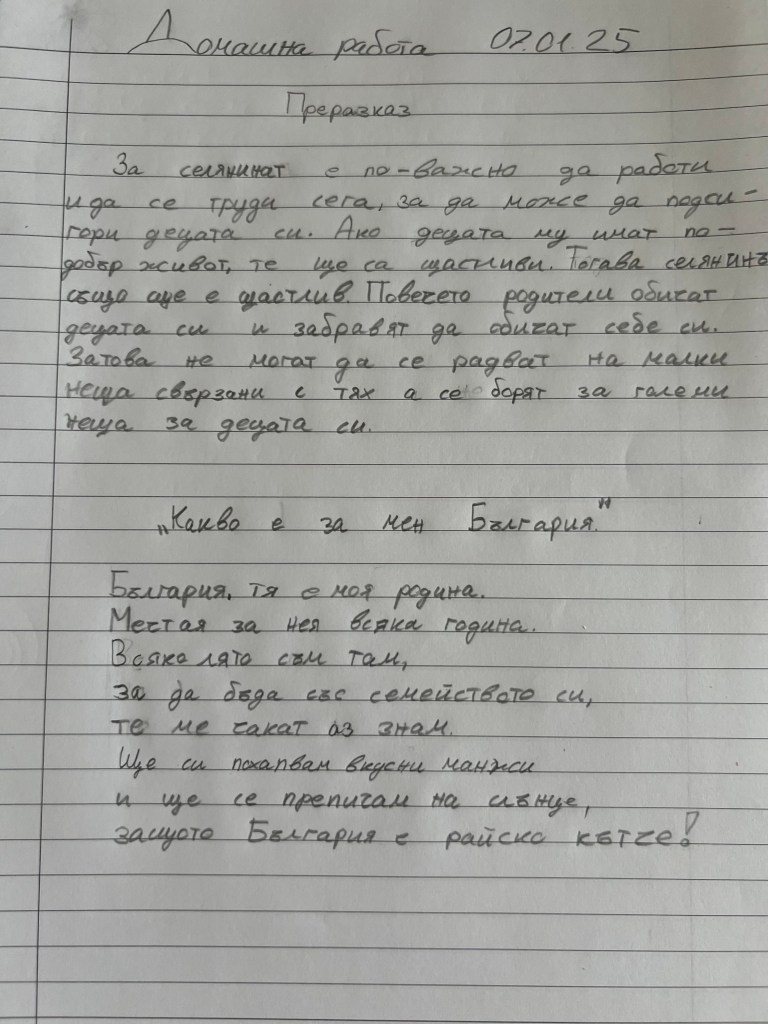 Домашна работа 07.01.25
Преразказ
За селянинат е по-важно да работи
и да се труди сега, за да може да подси-
гори децата си. Ако децата му имат по-
добър живот, те ще са щастливи. Тогава селянинъ
също ще е щастлив. Повечето родители обичат
децата си и забравят да обичат себе си.
Затова не могат да се радват на малки
неща свързани с тях а се борят за големи
неща за децата си.
„Какво е за мен България."
България, тя е моя родина.
Мечтая за нея всяка година.
Всяко лято съм там,
за да бъда със семейството си,
те ме чакат аз знам.
Ще си похапвам вкусни манжи
и ще се препичам на слънце,
защото България е райско кътче!